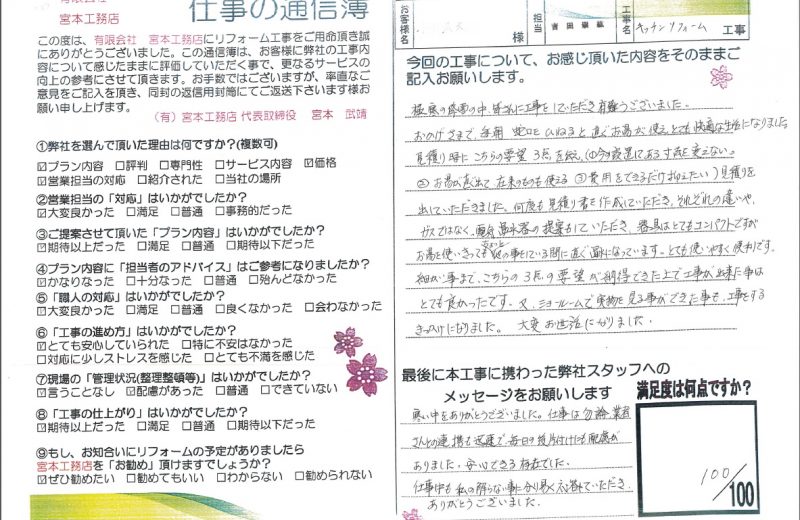 有限会社
宮本工務店
仕事の通信簿
この度は、有限会社 宮本工務店にリフォーム工事をご用命頂き誠
にありがとうございました。この通信簿は、お客様に弊社の工事内
容について感じたままに評価していただく事で、更なるサービスの
向上の参考にさせて頂きます。お手数ではございますが、率直なご
意見をご記入を頂き、同封の返信用封筒にてご返送下さいます様お
願い申し上げます。
(有)宮本工務店 代表取締役 宮本 武靖
①弊社を選んで頂いた理由は何ですか?(複数可)
☑プラン内容 □評判 □専門性 □サービス内容 ☑価格
☑営業担当の対応 □紹介された □当社の場所
②営業担当の「対応」はいかがでしたか?
☑大変良かった □満足 □普通 □事務的だった
③ご提案させて頂いた「プラン内容」はいかがでしたか?
☑期待以上だった □満足 □普通 □期待以下だった
④プラン内容に「担当者のアドバイス」はご参考になりましたか?
☑かなりなった □十分なった □普通 □殆んどなかった
⑤「職人の対応」はいかがでしたか?
☑大変良かった □満足 □普通 □良くなかった □会わなかった
⑥「工事の進め方」はいかがでしたか?
☑とても安心していられた □特に不安はなかった
□対応に少しストレスを感じた □とても不満を感じた
⑦現場の「管理状況(整理整頓等)」はいかがでしたか?
☑言うことなし ☑配慮があった □普通 □できていない
⑧「工事の仕上がり」はいかがでしたか?
☑期待以上だった □満足 □普通 □期待以下だった
⑨もし、お知合いにリフォームの予定がありましたら
宮本工務店を「お勧め」頂けますでしょうか?
☑ぜひ勧めたい □勧めてもいい □わからない □勧められない
お客様名
担当
吉田
工事名
キッチンリフォーム 工事
今回の工事について、お感じ頂いた内容をそのままご
記入お願いします。
極寒の時季の中、皆さんに工事をしていただき有難うございました。
おかげさまで、毎朝 蛇口をひねると直ぐお湯が使え、とても快適な生活になりました
見積り時にこちらの要望 3点を伝え、(①今設置してある寸法を変えない。
②お湯が直出て在来のものも使える ③費用をできるだけ抑えたい)見積りを
出していただきました。何度も見積り書を作成していただき、それぞれの違いや、
ガスではなく、電気温水器の提案もしていただき、器具はとてもコンパクトですが
お湯を使いきっても他の事をしている間に直ぐ満杯になっています。とても使いやすく便利です。
細かい事まで、こちらの3点の要望が納得できた上で工事が出来た事は
とても良かったです。又、ショールームで実物を見る事ができた事も、工事をする
きっかけになりました。 大変お世話になりました。
最後に本工事に携わった弊社スタッフへの
メッセージをお願いします
寒い中をありがとうございました。仕事は勿論、業者
さんとの連携も迅速で、毎日の後片付けにも配慮が
ありました。安心できる存在でした。
仕事中も私の解らない事に分り易く応答していただき、
ありがとうございました。
満足度は何点ですか?
100
/100